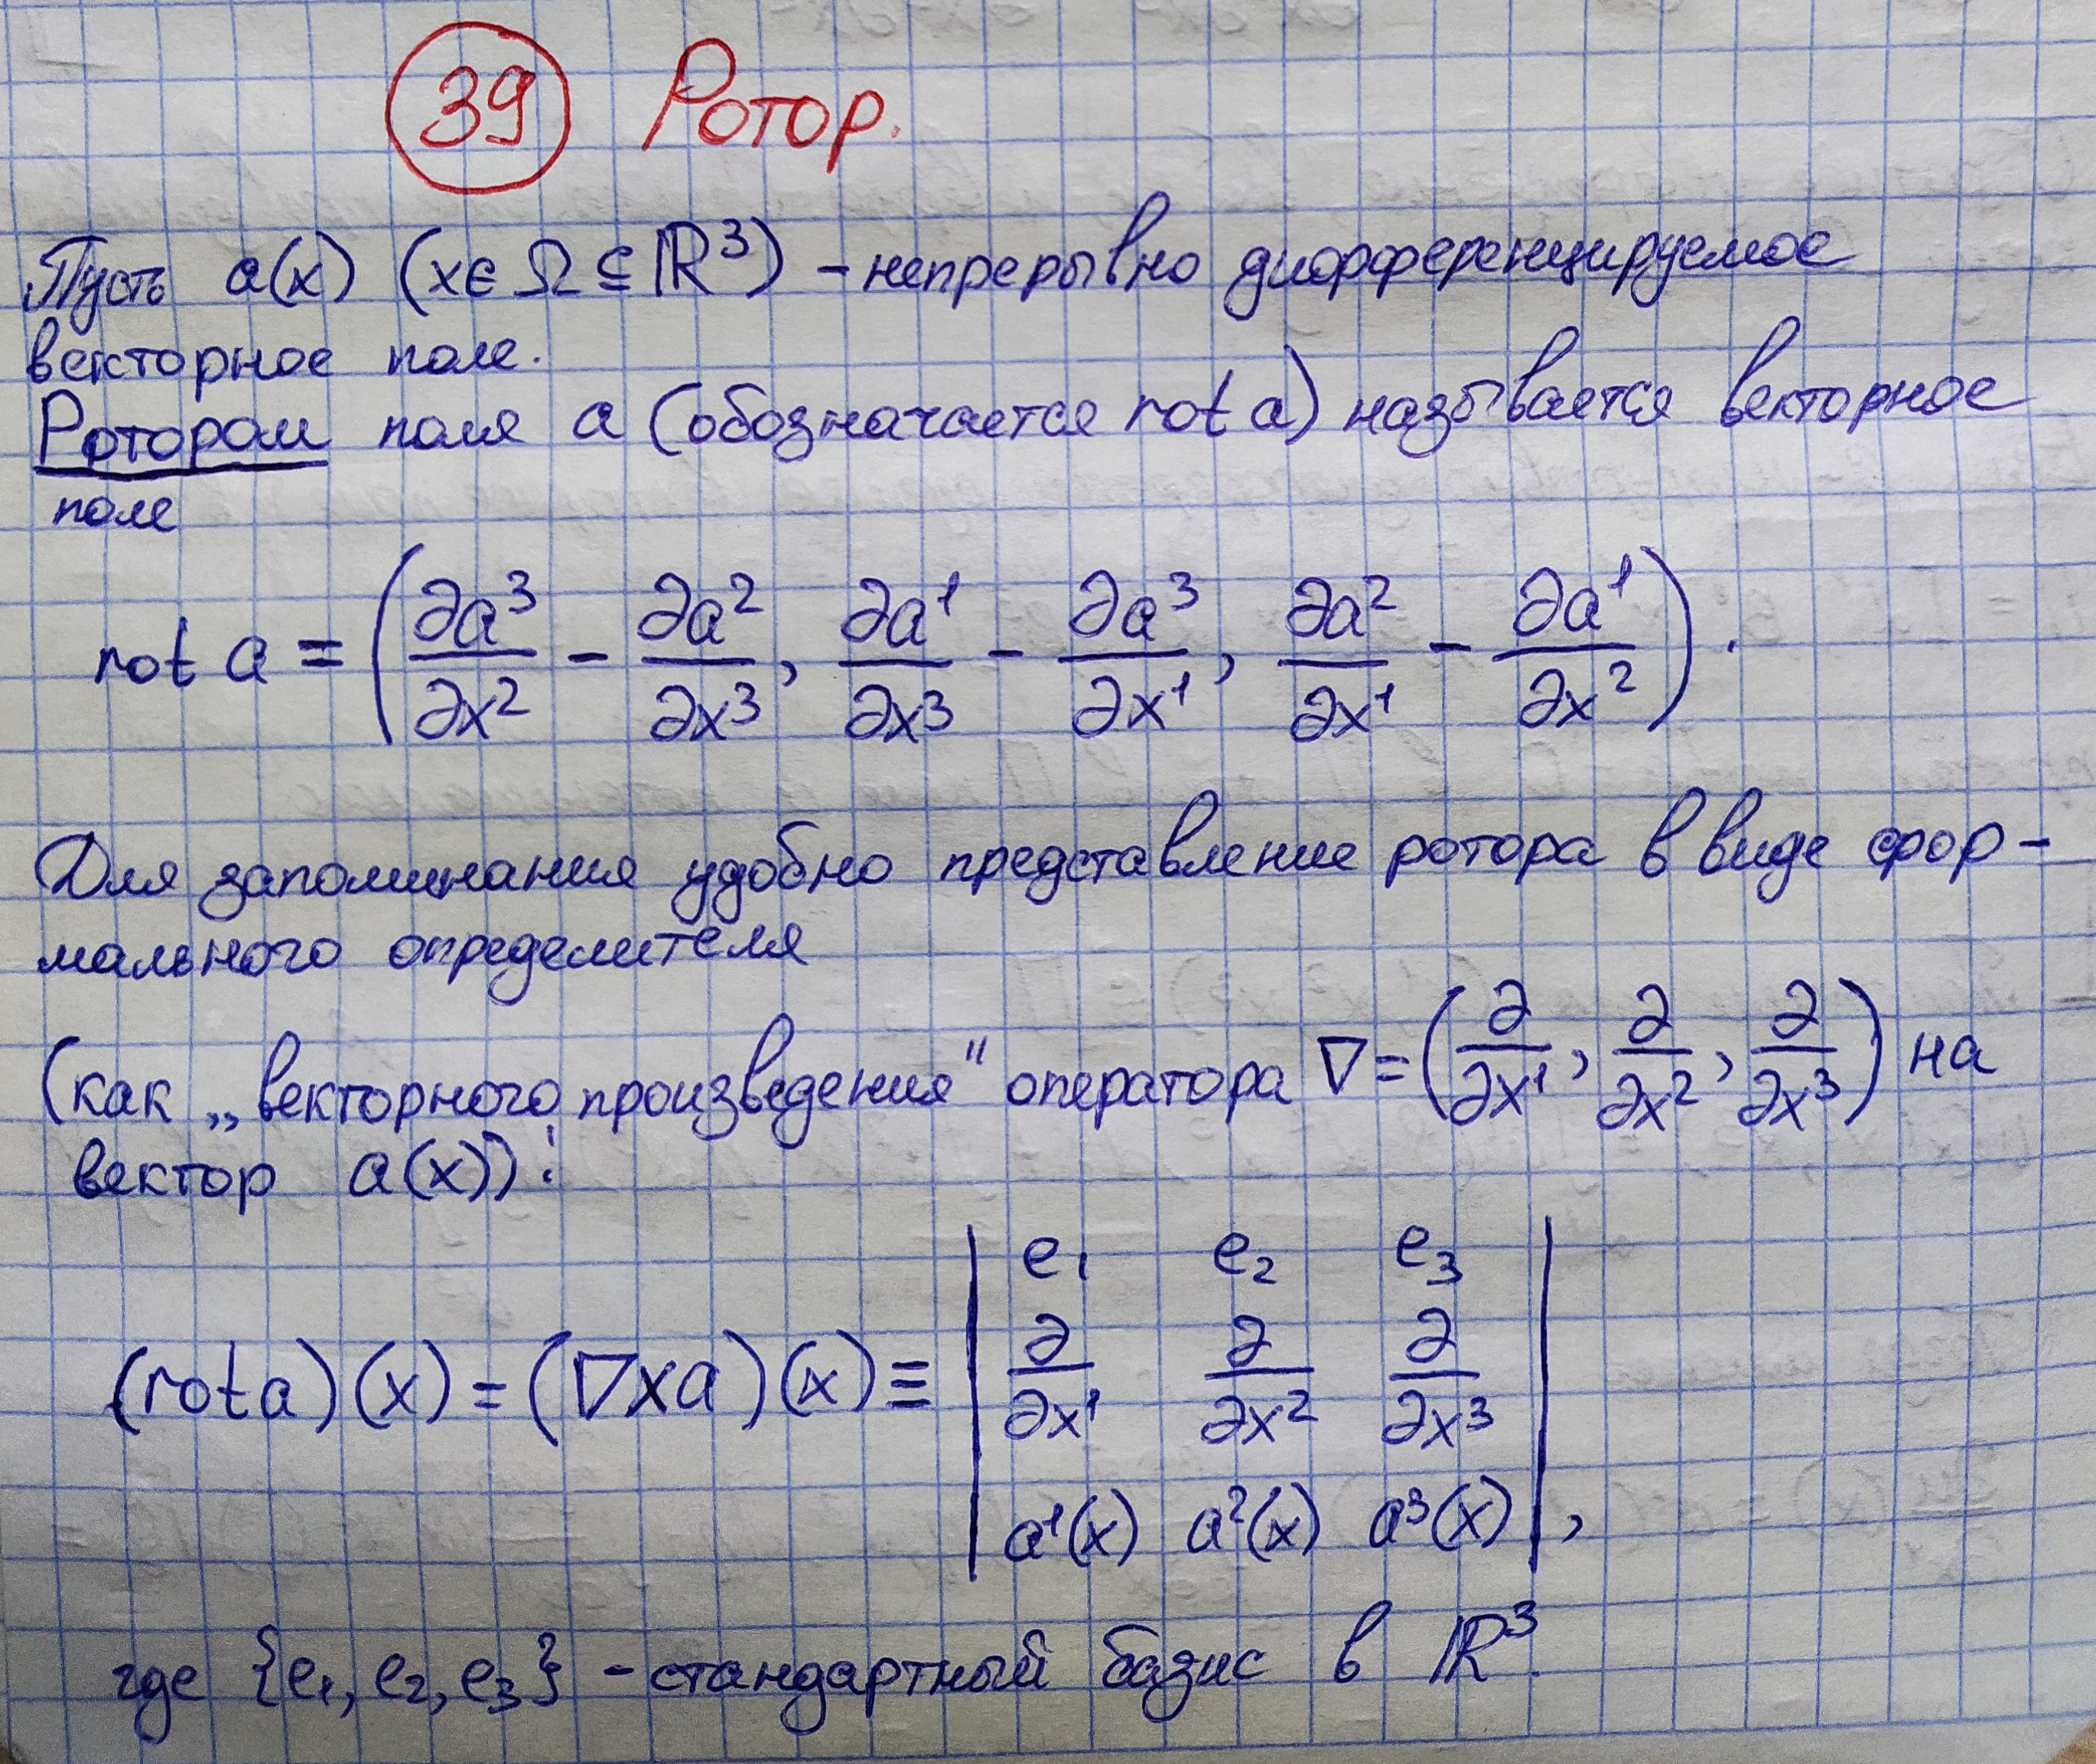 39 Ротор.
Пусть a(x) (x∈Ω⊆ℝ³) – непрерывно дифференцируемое
векторное поле.
Ротором поля a (обозначается rot a) называется векторное
поле
rot a = (∂a³/∂x² − ∂a²/∂x³, ∂a¹/∂x³ − ∂a³/∂x¹, ∂a²/∂x¹ − ∂a¹/∂x²).
Для запоминания удобно представление ротора в виде фор-
мального определителя
(как „векторного произведения" оператора ∇=(∂/∂x¹, ∂/∂x², ∂/∂x³) на
вектор a(x)):
e₁ e₂ e₃
(rot a)(x) = (∇×a)(x) ≡ | ∂/∂x¹ ∂/∂x² ∂/∂x³ |
a¹(x) a²(x) a³(x) ,
где {e₁, e₂, e₃} – стандартный базис в ℝ³.